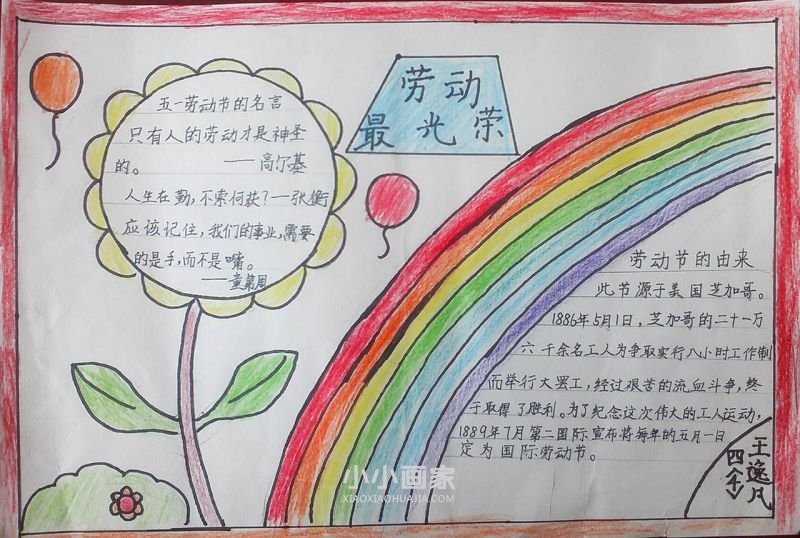 劳动
最光荣
五一劳动节的名言
只有人的劳动才是神圣
的。——高尔基
人生在勤,不索何获?一张衡
应该记住,我们的事业,需要
的是手,而不是嘴。
——童第周
劳动节的由来
此节源于美国芝加哥。
1886年5月1日,芝加哥的二十一万
六千余名工人为争取实行八小时工作制
而举行大罢工,经过艰苦的流血斗争,终
于取得了胜利。为了纪念这次伟大的工人运动,
1889年7月第二国际宣布将每年的五月一日
定为国际劳动节。
王逸凡
小小画家
XIAOXIAOHUAJIA.COM